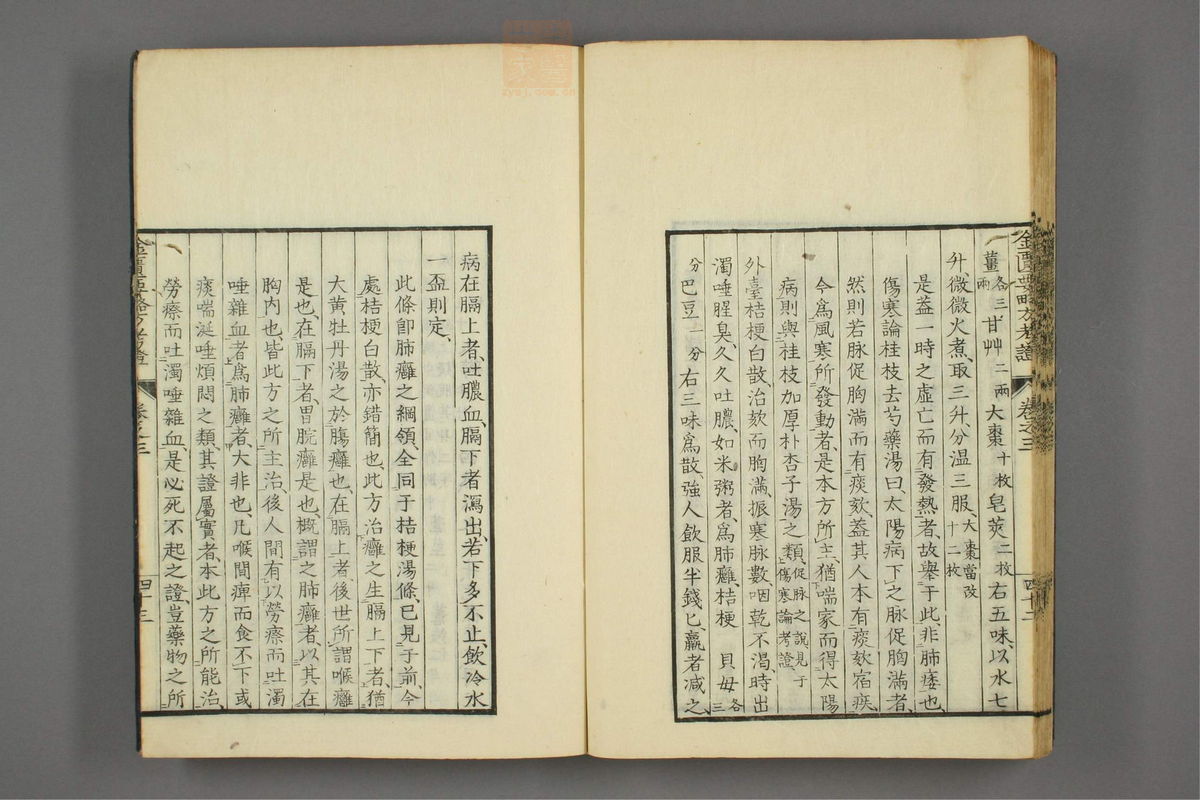 薑各三兩甘艸二兩大棗十枚皂莢二枚右五味、以水七
升、微微火煮、取三升、分温三服、大棗當改十二枚
是蓋一時之虛亡而有發熱者、故擧于此、非肺痿也
傷寒論桂枝去芍藥湯曰、太陽病下之脉促胸滿者、
然則若脉促胸滿而有痰欬、蓋其人本有痰欬宿疾、
今爲風寒所發動者、是本方所主、猶喘家而得太陽
病則與桂枝加厚朴杏子湯之類、促脉之說、見于傷寒論考證、
外臺桔梗白散、治欬而胸滿、振寒脉數、咽乾不渴、時出
濁唾腥臭、久久吐膿、如米粥者、爲肺癰、桔梗 貝母各三
分巴豆一分右三味爲散、強人飲服半錢匕、羸者減之、
金匱要略方考證 卷之三 四十二
病在膈上者、吐膿血、膈下者瀉出、若下多不止、飲冷水
一盃則定、
此條卽肺癰之綱領、全同于桔梗湯條、已見于前、今
處桔梗白散、亦錯簡也、此方治癰之生膈上下者、猶
大黃牡丹湯之於腸癰也、在膈上者、後世所謂喉癰
是也、在膈下者、胃脘癰是也、概謂之肺癰者、以其在
胸内也、皆此方之所主治、後人間有以勞瘵而吐濁
唾雜血者爲肺癰者、大非也、凡喉間痺而食不下或
痰喘涎唾煩悶之類、其證屬實者、本此方之所能治、
勞瘵而吐濁唾雜血、是必死不起之證、豈藥物之所
金匱要略方考證 卷之三 四十三